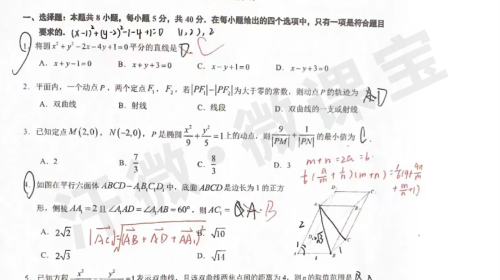 一、选择题：本题共 8 小题，每小题 5 分，共 40 分．在每小题给出的四个选项中，只有一项是符合题目
要求的． (x-1)²+(y-2)²-1-4+1=0 (1,2), 2
1. 将圆 x²+y²-2x-4y+1=0 平分的直线是 D. C
A. x+y-1=0 B. x+y+3=0 C. x-y+1=0 D. x-y+3=0
2. 平面内，一个动点 P，两个定点 F₁，F₂，若 |PF₁|-|PF₂| 为大于零的常数，则动点 P 的轨迹为 A D
A. 双曲线 B. 射线 C. 线段 D. 双曲线的一支或射线
3. 已知定点 M(2,0)，N(-2,0)，P 是椭圆 x²/9+y²/5=1 上的动点，则 9/|PM|+1/|PN| 的最小值为 C.
A. 2 B. 7/3 C. 8/3 D. 3
m+n=2a=6
4. 如图在平行六面体 ABCD-A₁B₁C₁D₁ 中，底面 ABCD 是边长为 1 的正方
形，侧棱 AA₁=2 且 ∠A₁AD=∠A₁AB=60°，则 AC₁= A. B
A. 2√2 B. √10
|AC₁|=√(AB+AD+AA₁)²
C. 2√3 D. √14
正微·微课宝
5. 已知方程 表示双曲线，且该双曲线两焦点间的距离为 4，则 n 的取值范围是